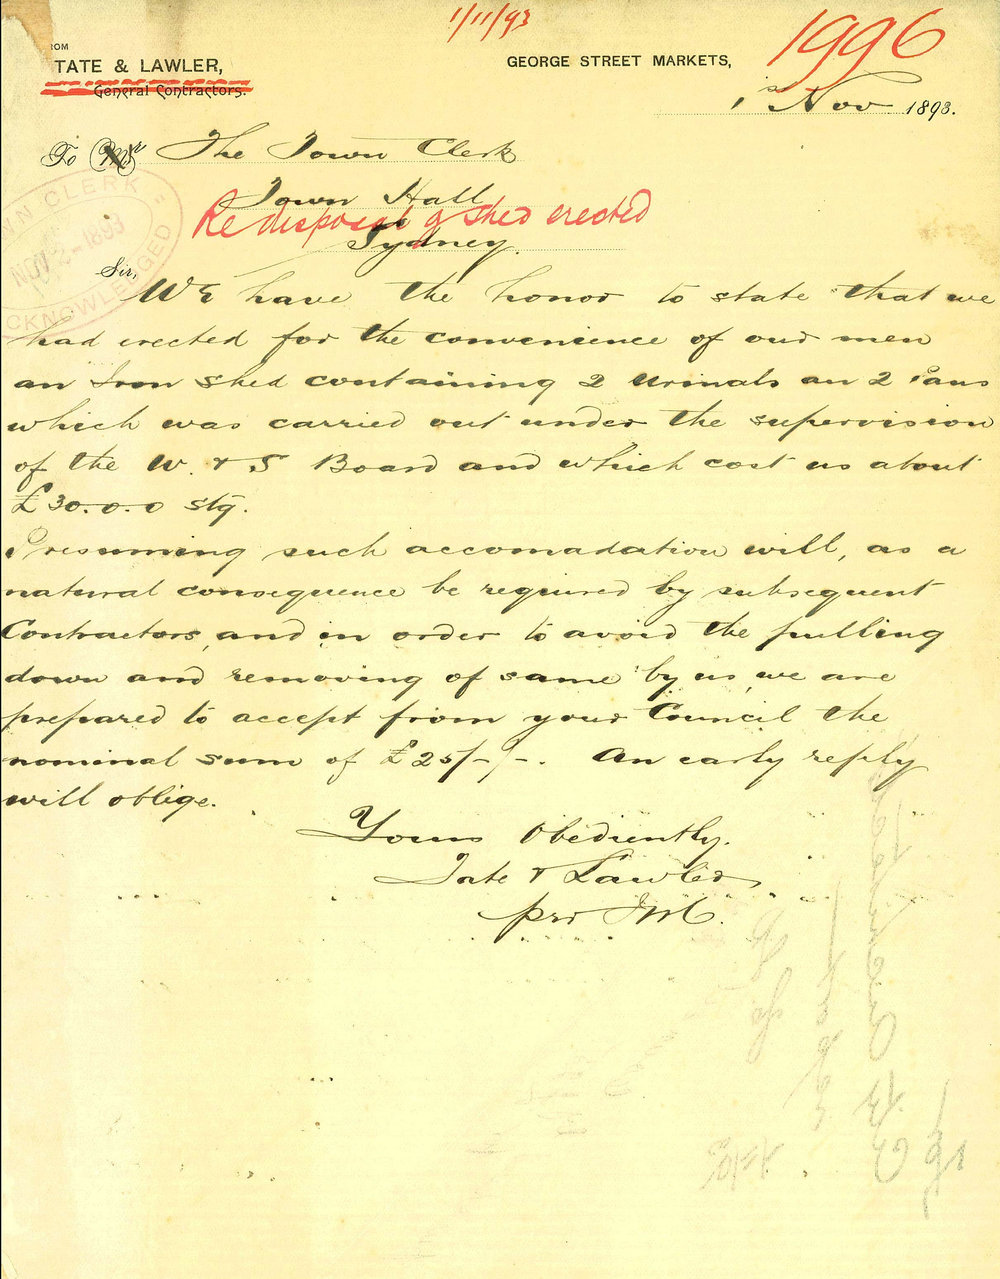 1/11/93
1996
FROM
TATE & LAWLER,
General Contractors.
GEORGE STREET MARKETS,
1st Nov 1893.
To Mr The Town Clerk
Town Hall
Re disposal of shed erected
Sydney.
TOWN CLERK
NOV 2 - 1893
ACKNOWLEDGED
Sir,
We have the honor to state that we
had erected for the convenience of our men
an Iron shed containing 2 Urinals an 2 Pans
which was carried out under the supervision
of the W. & S Board and which cost us about
£30.0.0 stg.
Presuming such accomadation will, as a
natural consequence be required by subsequent
Contractors, and in order to avoid the pulling
down and removing of same by us, we are
prepared to accept from your Council the
nominal sum of £25/-/-. An early reply
will oblige.
Yours Obediently.
Tate & Lawler
per